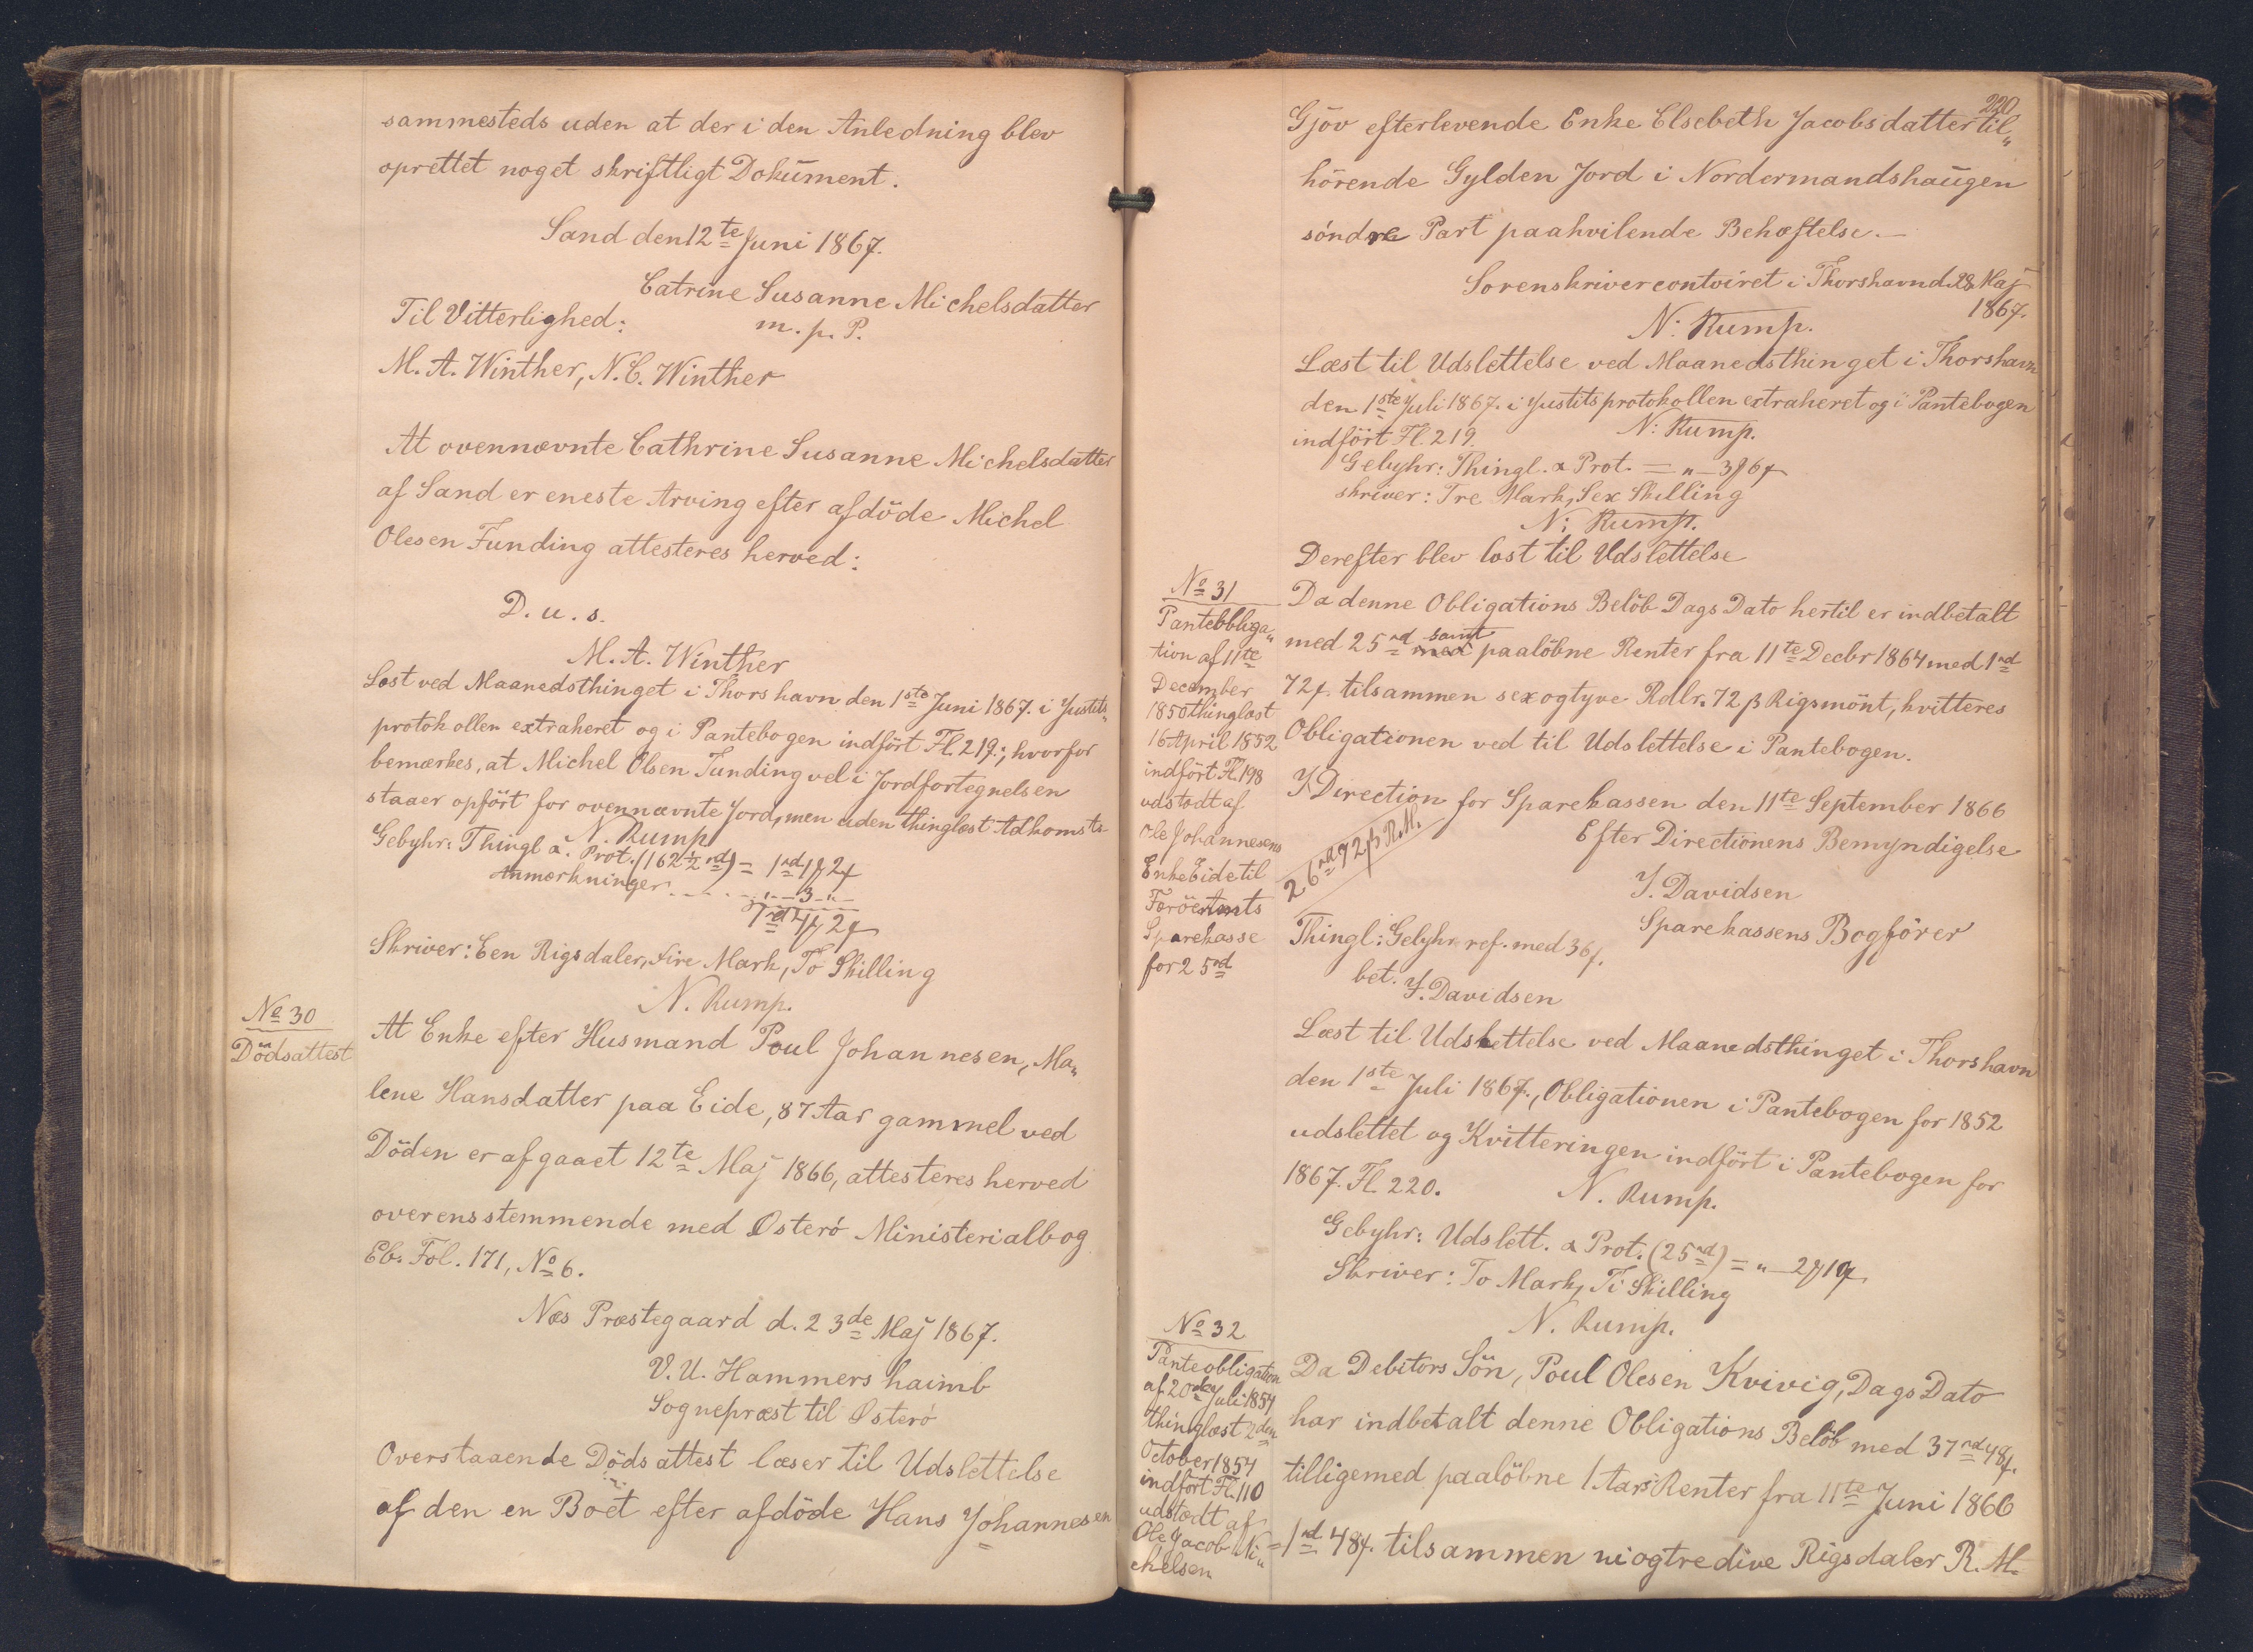 sammesteds uden at der i den Anledning blev
oprettet noget skriftligt Dokument.
Sand den 12te Juni 1867.
Catrine Susanne Michelsdatter
m. p. P.
Til Vitterlighed:
M. A. Winther, N. C. Winther
At ovennævnte Cathrine Susanne Michelsdatter
af Sand er eneste Arving efter afdöde Michel
Olesen Funding attesteres herved:
D. u. s.
M. A. Winther
Læst ved Maanedsthinget i Thorshavn den 1ste Juni 1867. i Justits„
protokollen extraheret og i Pantebogen indfört Fl. 219.; hvorfor
bemærkes, at Michel Olsen Funding vel i Jordfortegnelsen
staaer opfört for ovennævnte Jord, men uden thinglæst Adkomst.
N. Rump
Gebyhr: Thingl. a. Prot. (162½ rd) = 1rd 1 2
Anmærkninger - - - - „ - 3 - „
1rd 4 2
Skriver: Een Rigsdaler, Fire Mark, To Skilling
N. Rump.
No 30
Dödsattest
At Enke efter Husmand Poul Johannesen, Ma„
lene Hansdatter paa Eide, 87 Aar gammel ved
Döden er afgaaet 12te Maj 1866, attesteres herved
overensstemmende med Østerö Ministerialbog
Eb. Fol. 171, No 6.
Næs Præstegaard d. 23de Maj 1867.
V. U. Hammershaimb
Sognepræst til Østerö
Overstaaende Dödsattest læser til Udslettelse
af den en Boet efter afdöde Hans Johannesen
220
Gjöv efterlevende Enke Elsebeth Jacobsdatter til„
hörende Gylden Jord i Nordermandshaugen
söndre Part paahvilende Behæftelse. —
Sorenskrivercontoiret i Thorshavn d. 28 Maj
1867.
N. Rump.
Læst til Udslettelse ved Maanedsthinget i Thorshavn
den 1ste Juli 1867. i Justitsprotokollen extraheret og i Pantebogen
indfört Fl. 219. N: Rump.
Gebyhr: Thingl. a Prot. = „ - 3 6
skriver: Tre Mark, Sex Skilling
N: Rump.
Derefter blev læst til Udslettelse
No 31
Panteobliga„
tion af 11te
December
1850 thinglæst
16 April 1852
indfört Fl. 198
udstædt af
Ole Johannesens
Enke Eide til
Faröe Amts
Sparekasse
for 25rd
Da denne Obligations Belöb Dags Dato hertil er indbetalt
med 25rd samt paalöbne Renter fra 11te Decbr 1864 med 1rd
72 tilsammen sexogtyve Rdlr. 72 β Rigsmönt, kvitteres
Obligationen ved til Udslettelse i Pantebogen.
I Direction for Sparekassen den 11te September 1866
Efter Directionens Bemyndigelse
J. Davidsen
Sparekassens Bogförer
26rd 72 β R.M.
Thingl: Gebyhr ref. med 36
bet. J. Davidsen
Læst til Udslettelse ved Maanedsthinget i Thorshavn
den 1ste Juli 1867., Obligationen i Pantebogen for 1852
udslettet og Kvitteringen indfört i Pantebogen for
1867. Fl. 220. N. Rump.
Gebyhr: Udslett. a Prot. (25rd) = „ - 2 10
Skriver: To Mark, Ti Skilling
N. Rump.
No 32
Panteobligation
af 20de Juli 1854
thinglæst 2den
October 1854
indfört Fl. 110
udstædt af
Ole Jacob Mi„
chelsen
Da Debitors Sön, Poul Olesen Kvivig, Dags Dato
har indbetalt denne Obligations Belöb med 37rd 48
tilligemed paalöbne 1 Aars Renter fra 11te Juni 1866
= 1rd 48 tilsammen niogtredive Rigsdaler R. M.